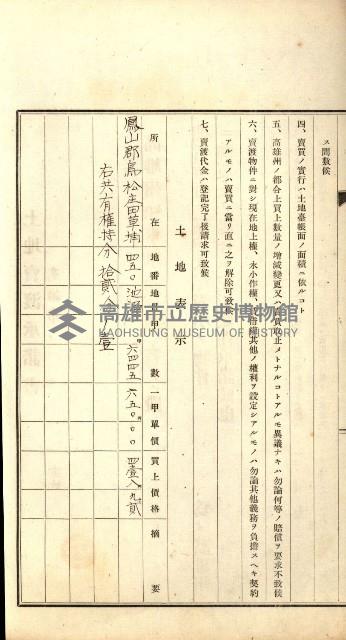 ス間敷候
四、賣買ノ實行ハ土地臺帳面ノ面積ニ依ルコト
五、高雄州ノ都合上買上數量ノ增減變更又ハ買上ヲトナルコトアルモ異議ナキハ勿論何等ノ賠償ヲ要求不致候
六、賣渡物件ニ對シ現在地上權、永小作權、其他ノ權利ヲ設定シアルモノハ勿論其他義務ヲ負擔スヘキ契約
アルモノハ賣買ニ當リ直ニ之ヲ解除可致候
七、賣渡代金ハ登記完了後請求可致候
土地表示
所在 地番 地目 甲數 一甲單價 買上價格 摘要
鳳山郡鳥松庄田草埔 四五〇 池 六四四五 六五〇〇〇 四壹八九貳
右共有權持分拾貳分 壹
高雄市立歷史博物館
KAOHSIUNG MUSEUM OF HISTORY